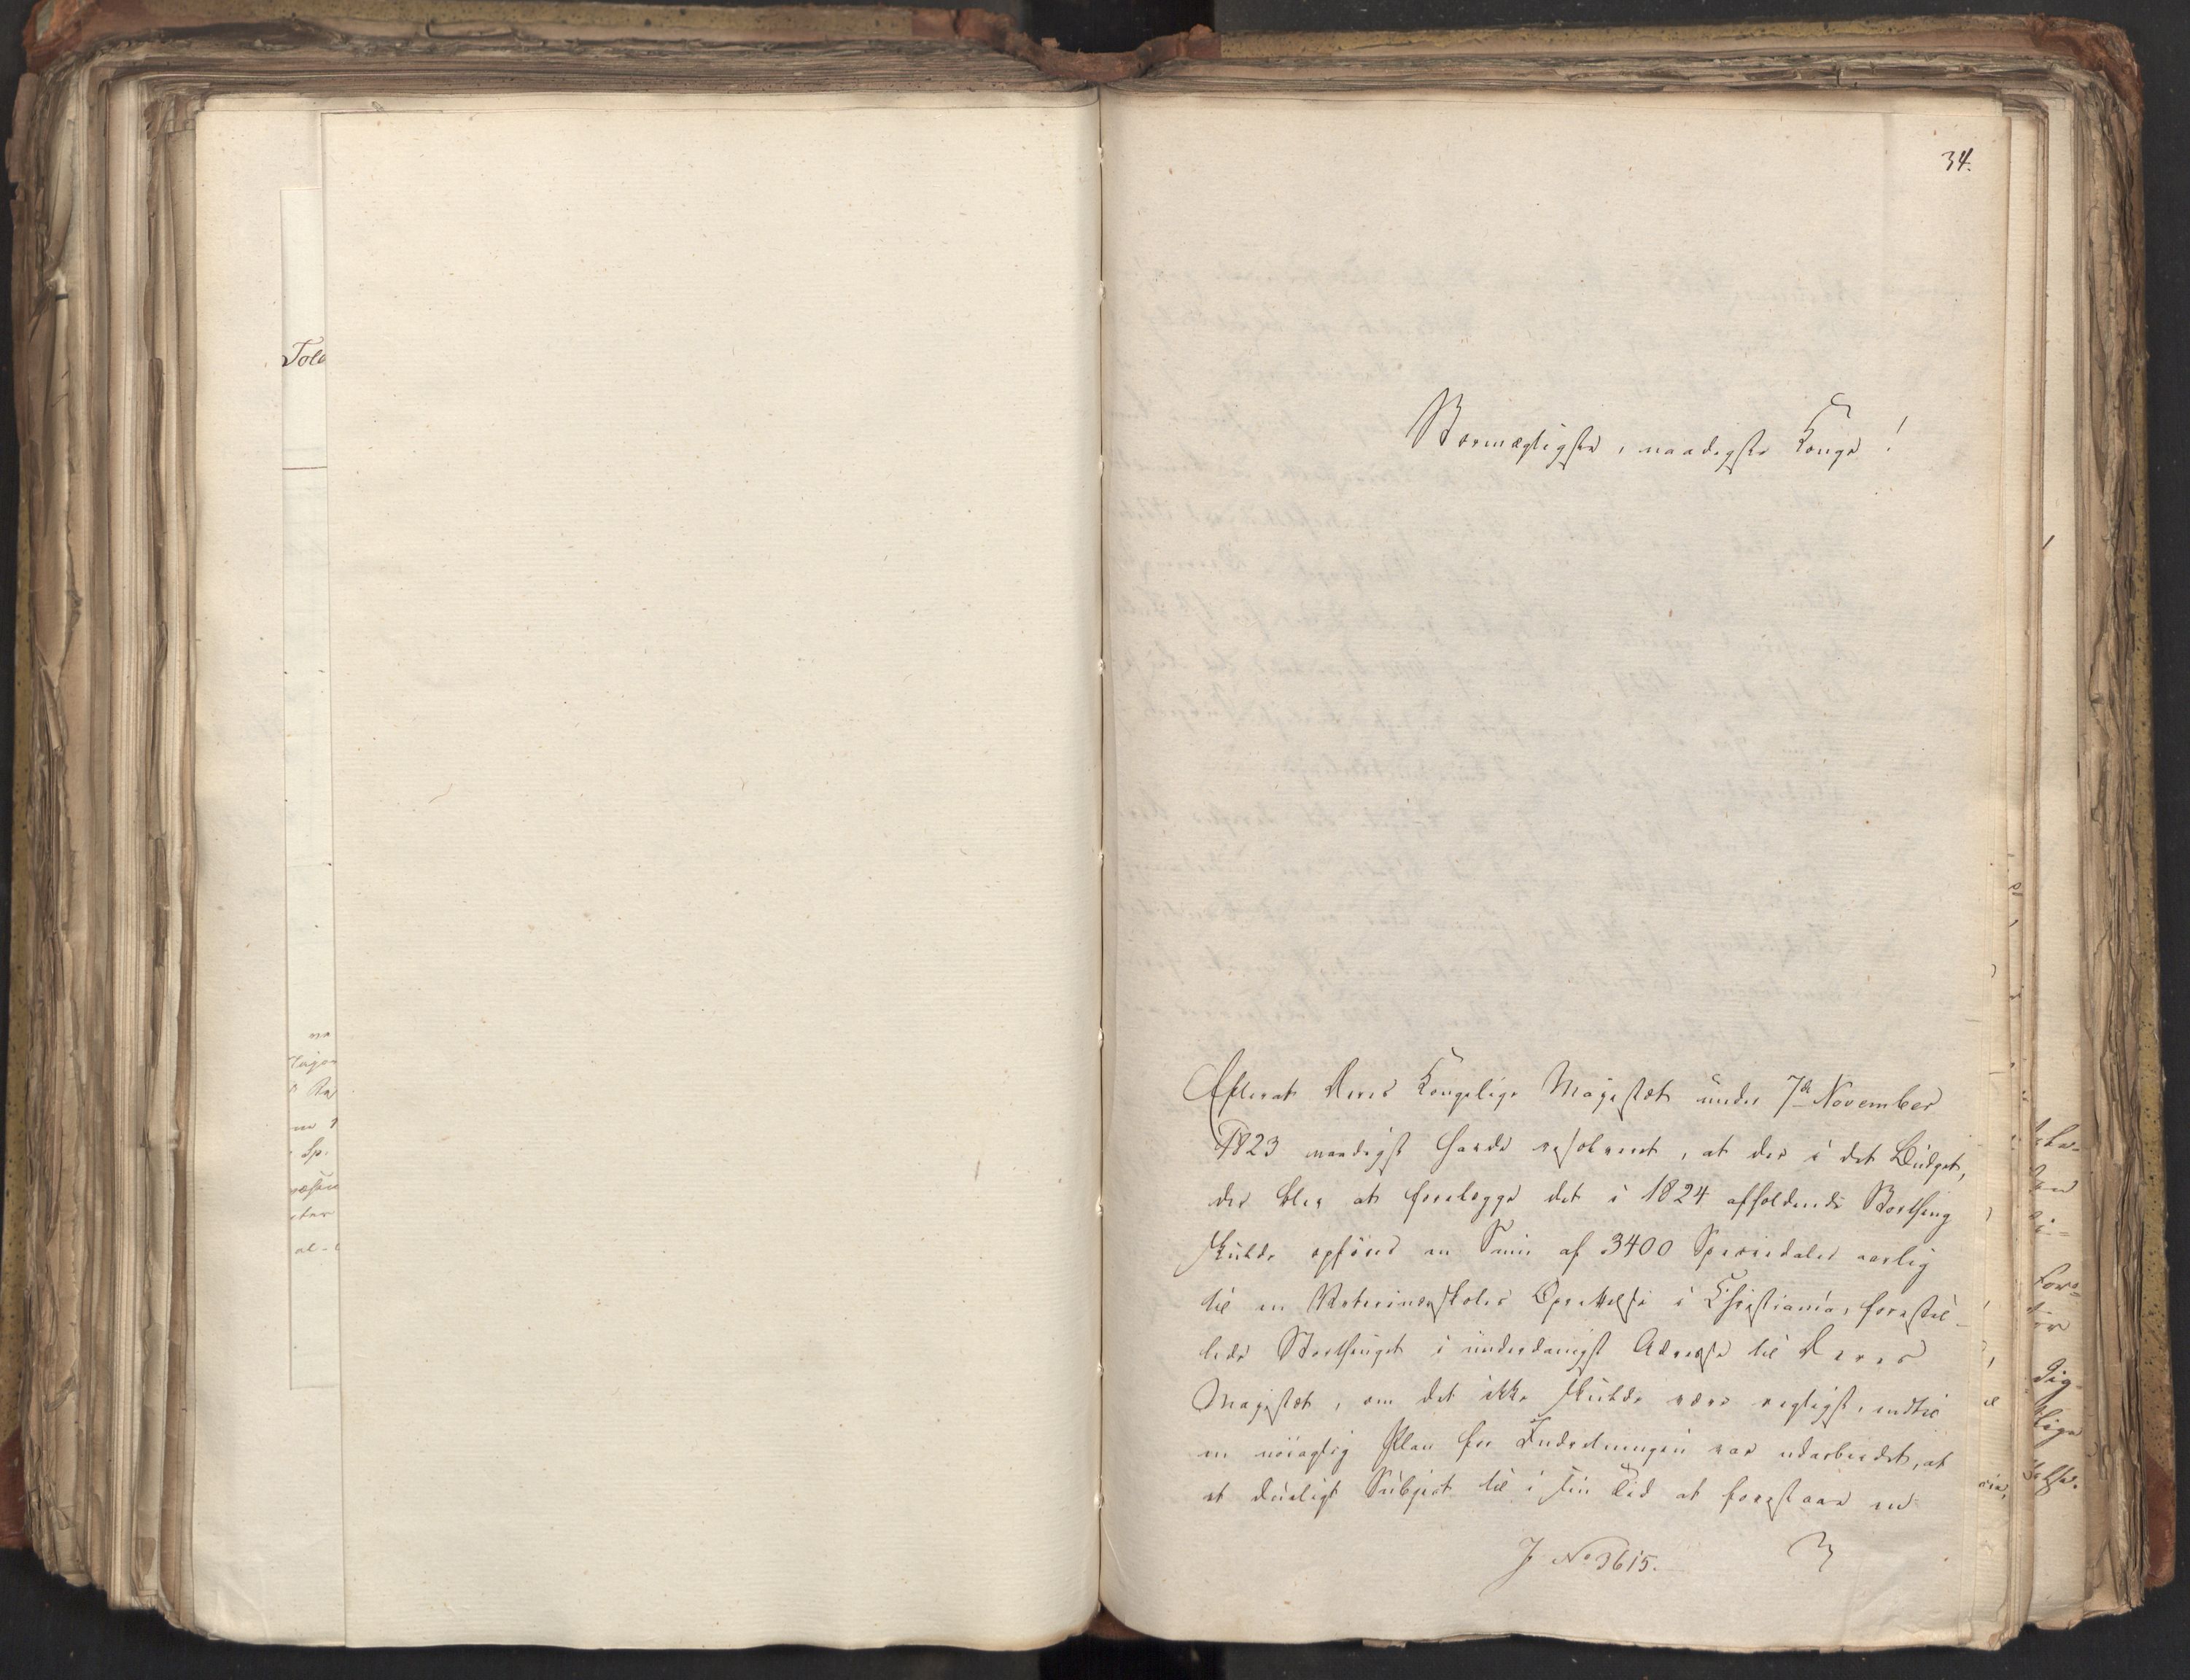 34.
Stormægtigste, naadigste Konge!
Efterat Deres Kongelige Majestæt under 7de November
1823 naadigst havde resolveret, at der i det Budget,
der blev at forelægge det i 1824 afholdende Storthing
skulde opføres en Sum af 3400 Speciedaler aarlig
til en Veterinærskoles Oprettelse i Christiania, forestil-
lede Storthinget i underdanigst Adresse til Deres
Majestæt, om det ikke skulde være rigtigst, indtil
en nöiagtig Plan for Indretningen var udarbeidet, at
et dueligt Subject til i sin Tid at forestaae en
J. No 3615.
Told